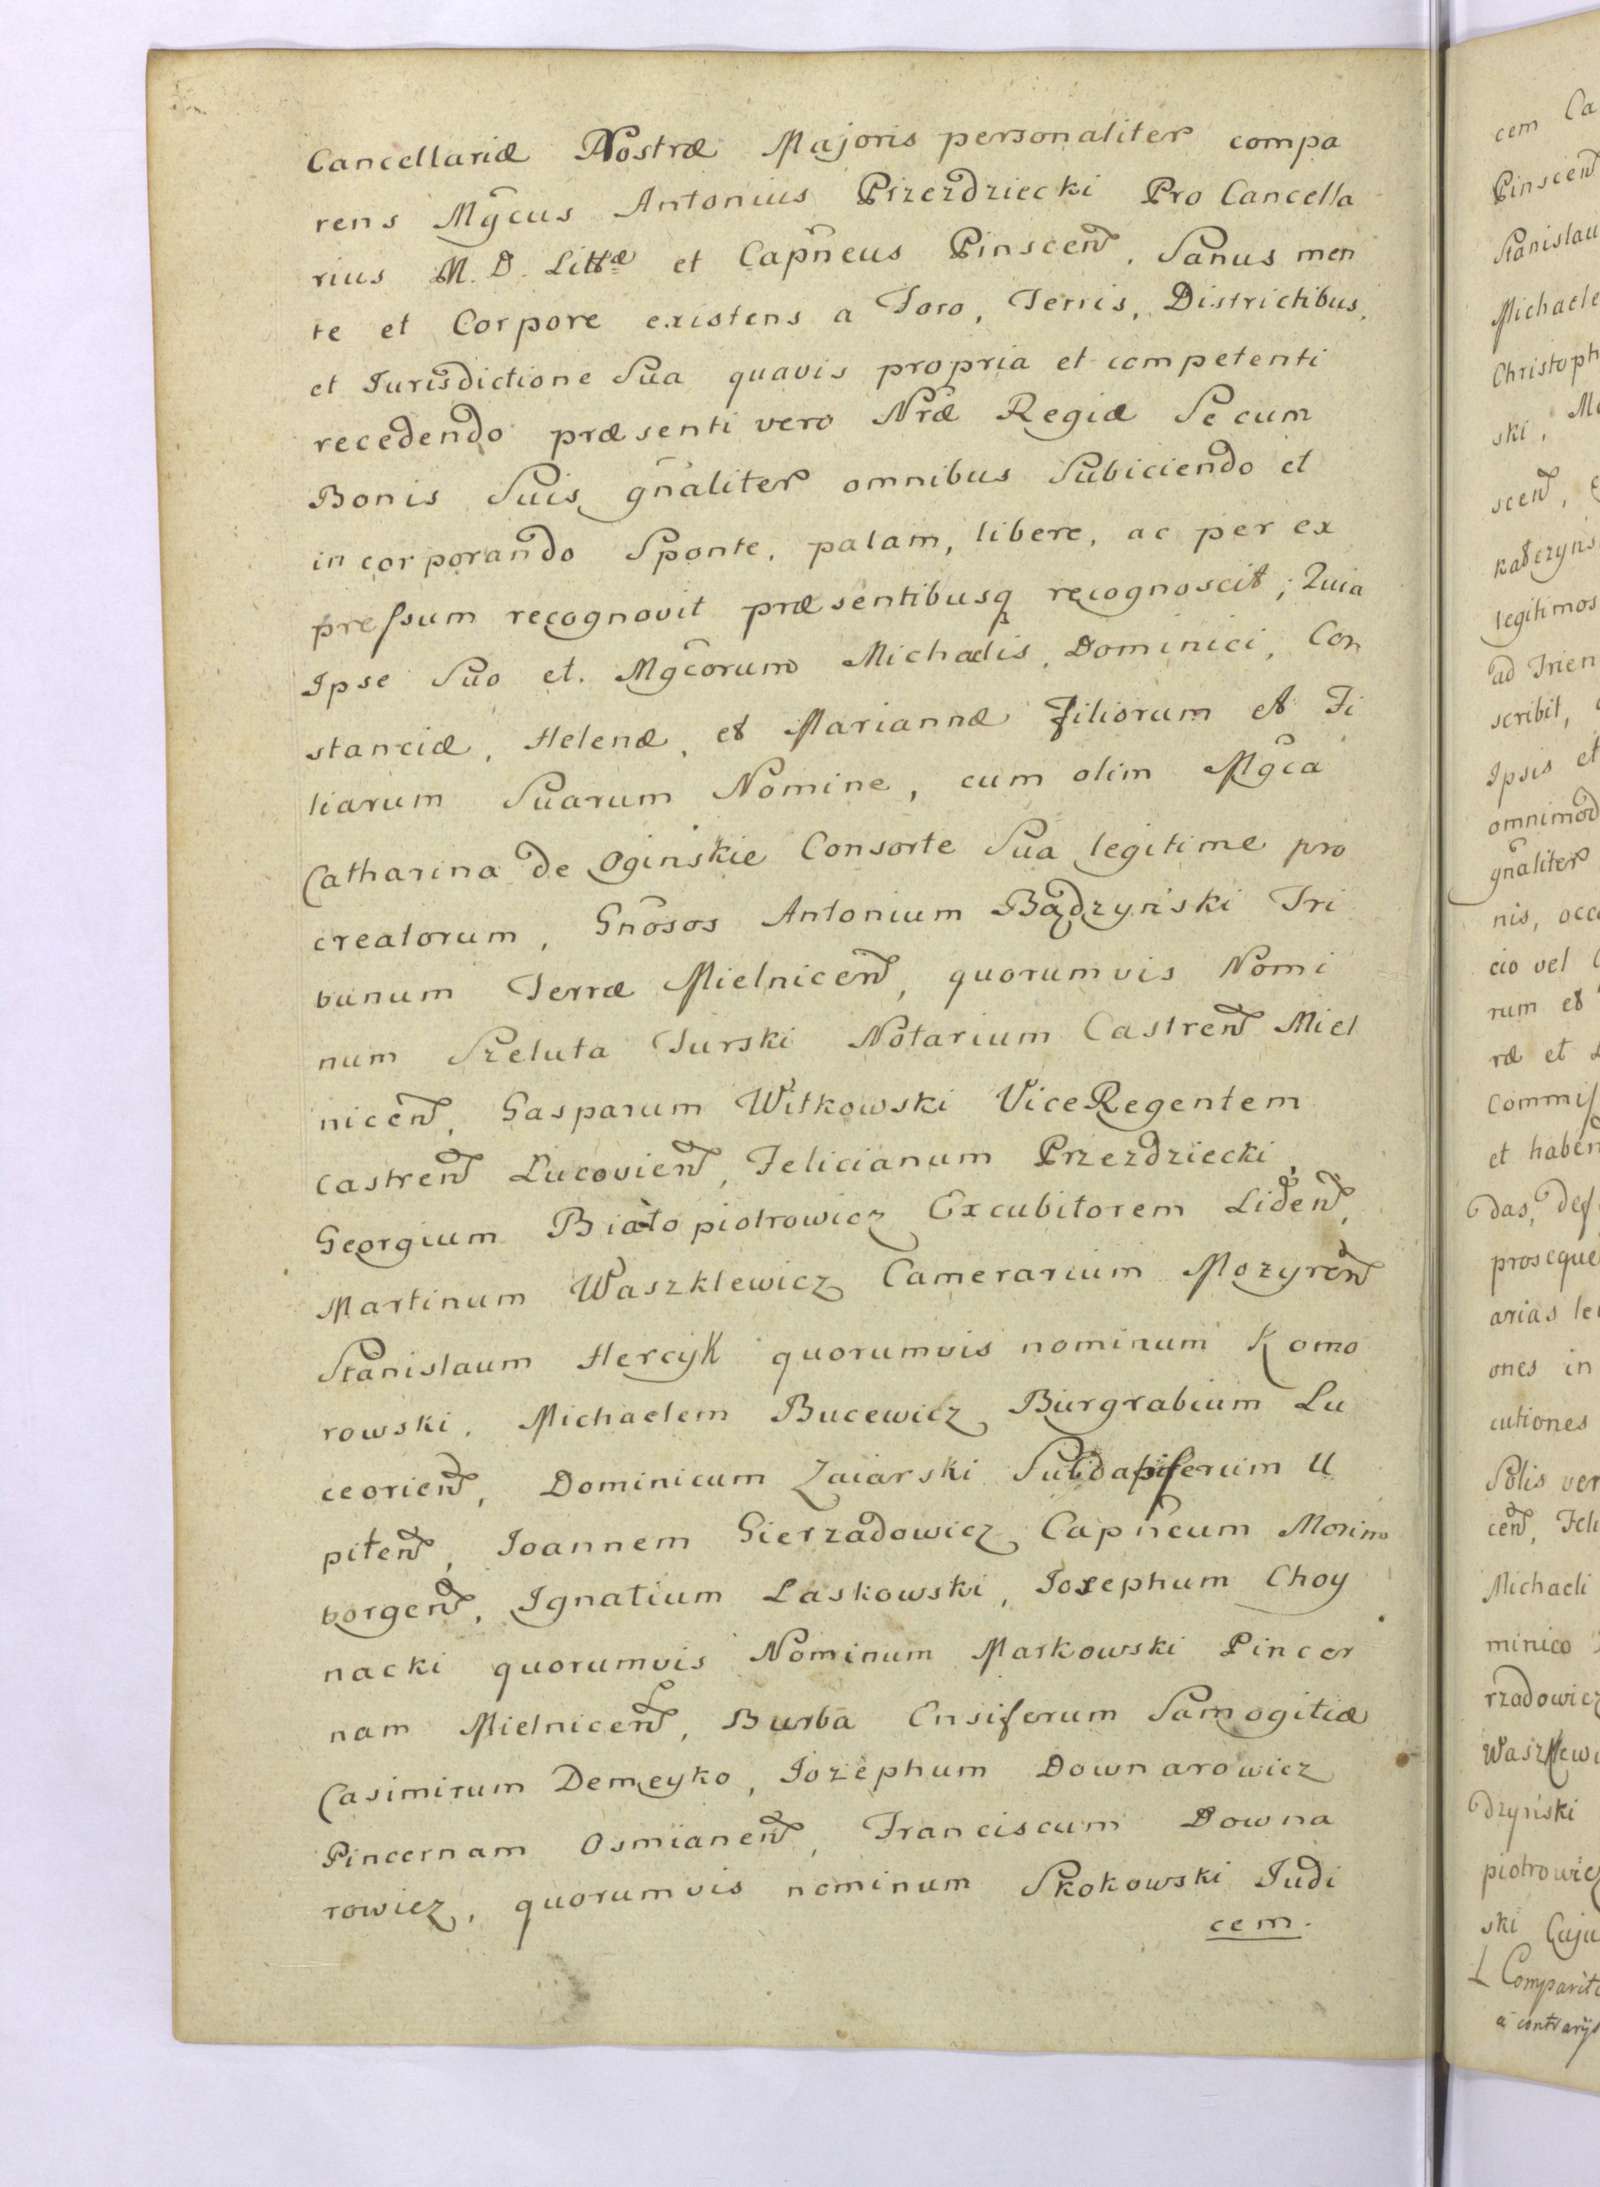 Cancellariæ Nostræ Majoris personaliter compa
rens Mg̃cus Antonius Przezdziecki Pro Cancella
rius M. D. Littæ et Capñeus Pinscen̄, Sanus men
te et Corpore existens a Foro, Terris, Districtibus,
et Iurisdictione Sua quavis propria et competenti
recedendo præsenti vero Nr̃æ Regiæ Se cum
Bonis Suis gñaliter omnibus Subiciendo et
incorporando Sponte, palam, libere, ac per ex
pressum recognovit præsentibusq recognoscit; Quia
Ipse Suo et. Mg̃corum Michaelis, Dominici, Con
stanciæ, Helenæ, et Mariannæ Filiorum et Fi
liarum Suarum Nomine, cum olim Mg̃ca
Catharina de Oginskie Consorte Sua legitime pro
creatorum, Gñosos Antonium Bądzyński Tri
bunum Terræ Mielnicen̄, quorumvis Nomi
num Szeluta Turski Notarium Castren̄ Miel
nicen̄, Gasparum Witkowski ViceRegentem
Castren̄ Lucovien̄, Felicianum Przezdziecki
Georgium Białopiotrowicz Excubitorem Liden̄,
Martinum Waszklewicz Camerarium Mozyren̄
Stanislaum Hercyk quorumvis nominum Komo
rowski, Michaelem Bucewicz Burgrabium Lu
ceorien̄, Dominicum Zaiarski Subdapiferum U
piten̄, Ioannem Gierzadowicz Capñeum
borgen̄, Ignatium Laskowski, Iosephum Choy
nacki quorumvis Nominum Markowski Pincer
nam Mielnicen̄, Burba Ensiferum Samogitiæ
Casimirum Demeyko, Iozephum Downarowicz
Pincernam Osmianen̄, Franciscum Downa
rowicz, quorumvis nominum Skokowski Iudi
cem.
cem
Pinscen̄
Stanislau
Michaele
Christoph
ski,
scen̄,
legitimos
ad Trien
scribit,
Ipsis et
omnimod
gñaliter
nis, occ
cio vel
rum et
ræ et
Commis
et haben
das, def
proseque
arias le
ones in
cutiones
Solis ver
cen̄, Feli
Michaeli
minico
rzadowicz
Waszklewi
dzyński
piotrowicz
ski Cuju
Comparit
a contrarys